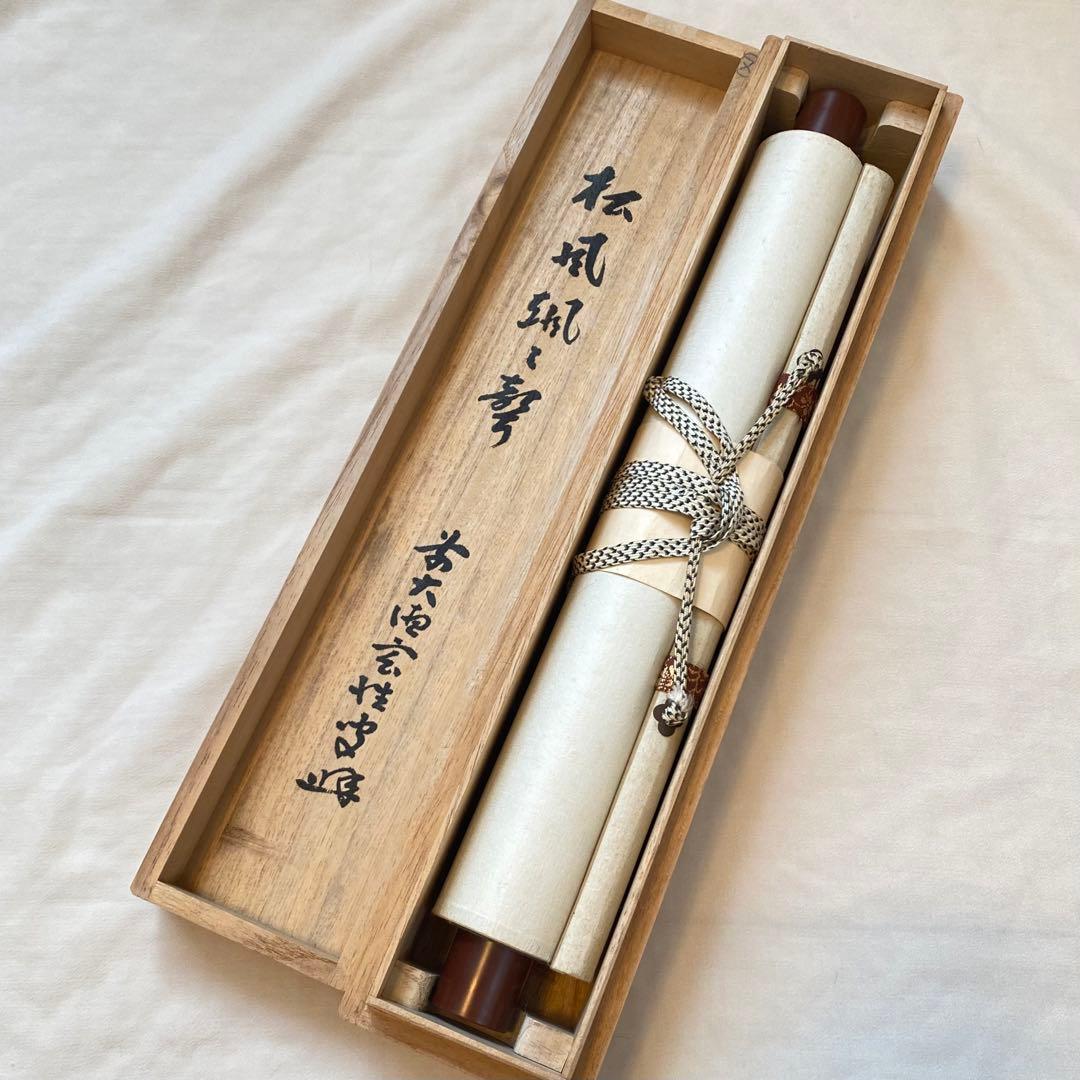 松風颯々聲
前大徳性峰